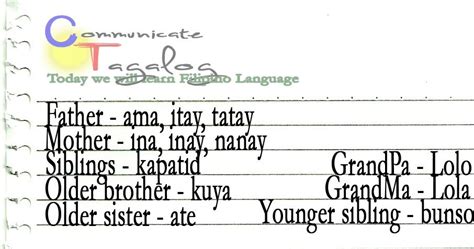 Communicate
Tagalog
Today we will learn Filipino Language
Father - ama, itay, tatay
Mother - ina, inay, nanay
Siblings - kapatid
GrandPa - Lolo
Older brother - kuya
GrandMa - Lola
Older sister - ate
Younger sibling - bunso